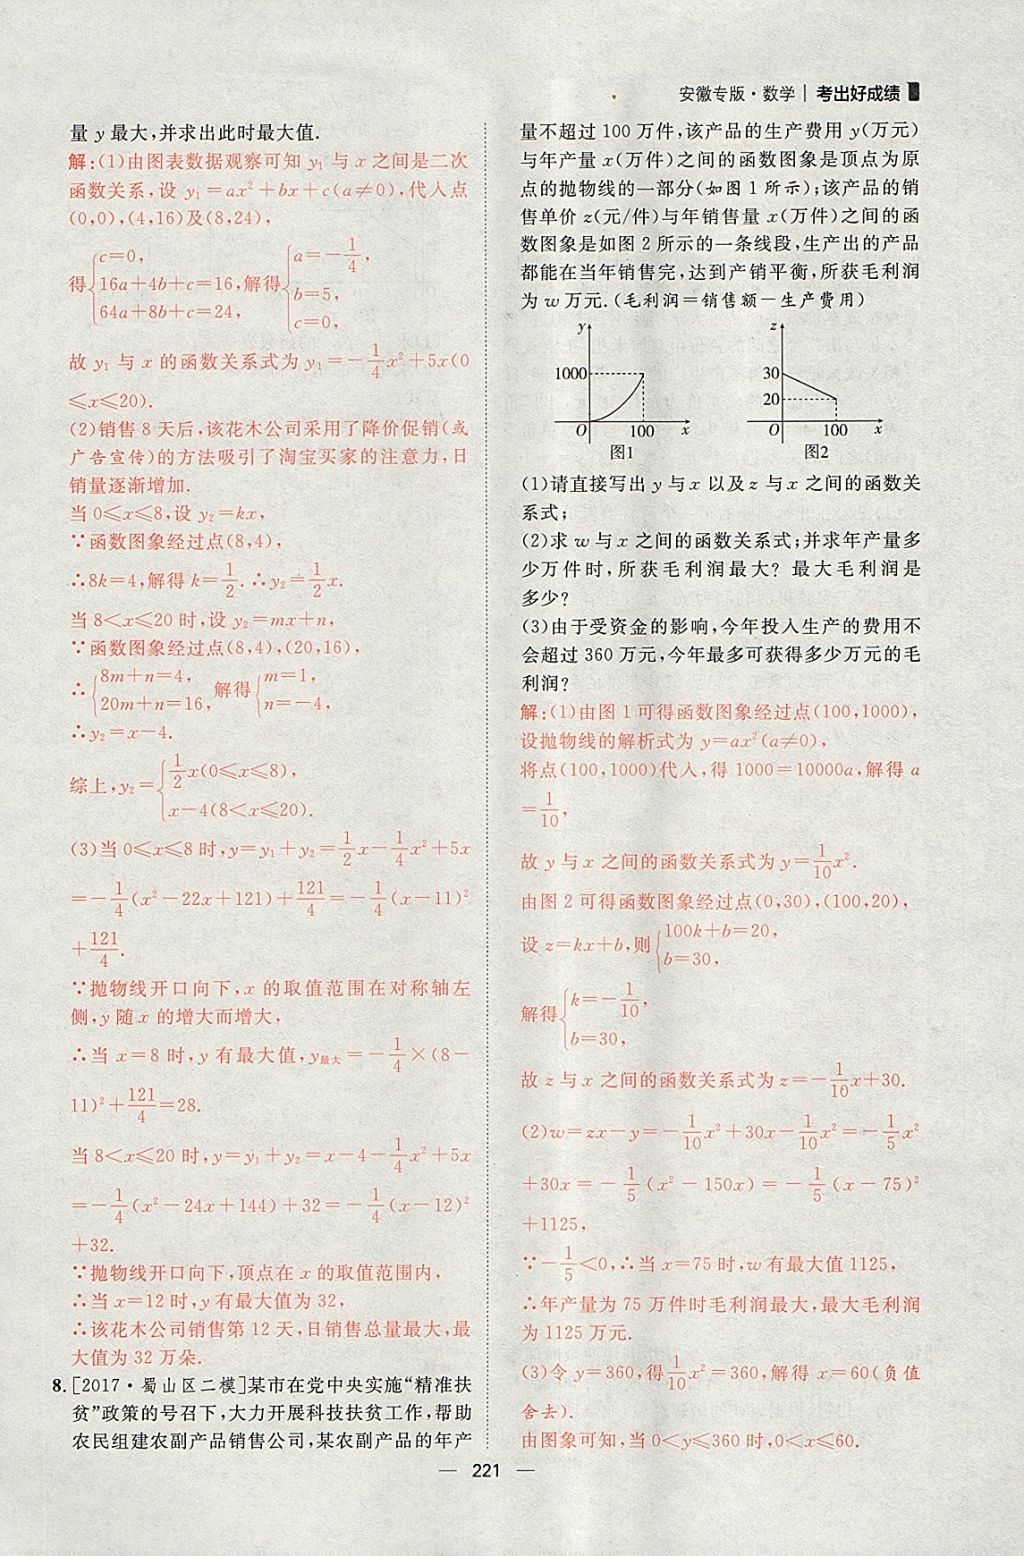 安徽专版·数学|考出好成绩
量 y 最大,并求出此时最大值.
解:(1)由图表数据观察可知 y₁ 与 x 之间是二次
函数关系,设 y₁=ax²+bx+c(a≠0),代入点
(0,0),(4,16)及(8,24),
得{c=0, 16a+4b+c=16, 64a+8b+c=24, 解得{a=-1/4, b=5, c=0,
故 y₁ 与 x 的函数关系式为 y₁=-1/4x²+5x(0
≤x≤20).
(2)销售 8 天后,该花木公司采用了降价促销(或
广告宣传)的方法吸引了淘宝买家的注意力,日
销量逐渐增加.
当 0≤x≤8,设 y₂=kx,
∵函数图象经过点(8,4),
∴8k=4,解得 k=1/2.∴y₂=1/2x.
当 8<x≤20 时,设 y₂=mx+n,
∵函数图象经过点(8,4),(20,16),
∴{8m+n=4, 20m+n=16, 解得{m=1, n=-4,
∴y₂=x-4.
综上,y₂={1/2x(0≤x≤8), x-4(8<x≤20).
(3)当 0≤x≤8 时,y=y₁+y₂=1/2x-1/4x²+5x
=-1/4(x²-22x+121)+121/4=-1/4(x-11)²
+121/4.
∵抛物线开口向下,x 的取值范围在对称轴左
侧,y 随 x 的增大而增大,
∴当 x=8 时,y 有最大值,y最大=-1/4×(8-
11)²+121/4=28.
当 8<x≤20 时,y=y₁+y₂=x-4-1/4x²+5x
=-1/4(x²-24x+144)+32=-1/4(x-12)²
+32.
∵抛物线开口向下,顶点在 x 的取值范围内,
∴当 x=12 时,y 有最大值为 32,
∴该花木公司销售第 12 天,日销售总量最大,最
大值为 32 万朵.
8.[2017·蜀山区二模]某市在党中央实施“精准扶
贫”政策的号召下,大力开展科技扶贫工作,帮助
农民组建农副产品销售公司,某农副产品的年产
量不超过 100 万件,该产品的生产费用 y(万元)
与年产量 x(万件)之间的函数图象是顶点为原
点的抛物线的一部分(如图 1 所示);该产品的销
售单价 z(元/件)与年销售量 x(万件)之间的函
数图象是如图 2 所示的一条线段,生产出的产品
都能在当年销售完,达到产销平衡,所获毛利润
为 w 万元.(毛利润=销售额-生产费用)
y
1000
O 100 x
图1
z
30
20
O 100 x
图2
(1)请直接写出 y 与 x 以及 z 与 x 之间的函数关
系式;
(2)求 w 与 x 之间的函数关系式;并求年产量多
少万件时,所获毛利润最大? 最大毛利润是
多少?
(3)由于受资金的影响,今年投入生产的费用不
会超过 360 万元,今年最多可获得多少万元的毛
利润?
解:(1)由图 1 可得函数图象经过点(100,1000),
设抛物线的解析式为 y=ax²(a≠0),
将点(100,1000)代入,得 1000=10000a,解得 a
=1/10,
故 y 与 x 之间的函数关系式为 y=1/10x².
由图 2 可得函数图象经过点(0,30),(100,20),
设 z=kx+b,则{100k+b=20, b=30,
解得{k=-1/10, b=30,
故 z 与 x 之间的函数关系式为 z=-1/10x+30.
(2)w=zx-y=-1/10x²+30x-1/10x²=-1/5x²
+30x=-1/5(x²-150x)=-1/5(x-75)²
+1125,
∵-1/5<0,∴当 x=75 时,w 有最大值 1125,
∴年产量为 75 万件时毛利润最大,最大毛利润
为 1125 万元.
(3)令 y=360,得1/10x²=360,解得 x=60(负值
舍去).
由图象可知,当 0<y≤360 时,0<x≤60.
— 221 —